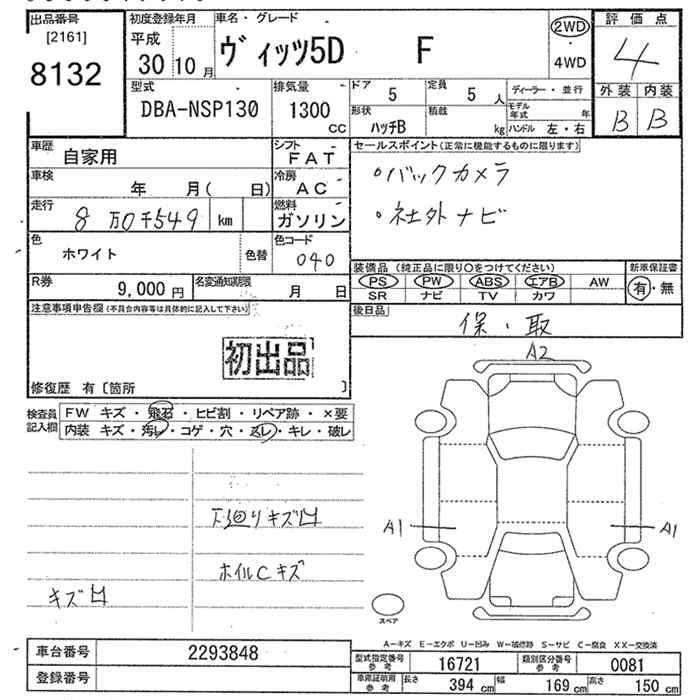 出品番号
[2161]
8132
初度登録年月
平成
30 10 月
車名・グレード
ヴィッツ5D F
2WD
・
4WD
評価点
4
外装 内装
B B
型式
DBA-NSP130
排気量
1300
CC
ドア
5
定員
5 人
ディーラー・並行
形状
ハッチB
積載
kg
モデル年式 年
ハンドル 左・右
車歴
自家用
シフト
FAT
セールスポイント(正常に機能するものに限ります)
・バックカメラ
・社外ナビ
車検
年 月( 日)
冷房
AC
走行
8 万0千549 km
燃料
ガソリン
色
ホワイト
色替
色コード
040
装備品 (純正品に限り○をつけてください)
PS PW ABS エアB AW
SR ナビ TV カワ
新車保証書
有・無
R券
9,000 円
名変通知期限
月 日
後日品
保・取
注意事項申告欄 (不具合内容等は具体的に記入して下さい)
初出品
修復歴 有〔箇所 〕
検査員記入欄
FW キズ・飛石・ヒビ割・リペア跡・×要
内装 キズ・汚レ・コゲ・穴・スレ・キレ・破レ
A2
A1
A1
下廻りキズ凹
ホイルCキズ
キズ凹
スペア
A-キズ E-エクボ U-凹み W-補修跡 S-サビ C-腐食 XX-交換済
車台番号
2293848
登録番号
型式指定番号 参考
16721
類別区分番号 参考
0081
車庫証明用 参考
長さ 394 cm 幅 169 cm 高さ 150 cm